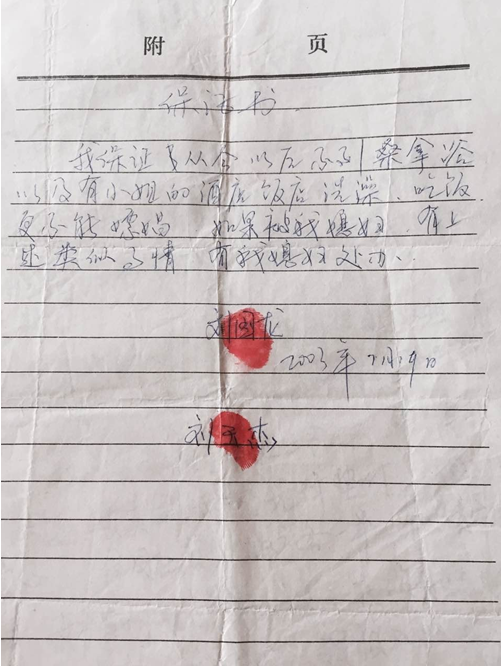 附 页
保证书
我保证 从今以后不 桑拿浴
以及有小姐的酒店饭店洗澡、吃饭
更不能嫖娼 如果被我媳妇 有上
述类似事情 有我媳妇处办、
刘国龙
2003年
刘 杰